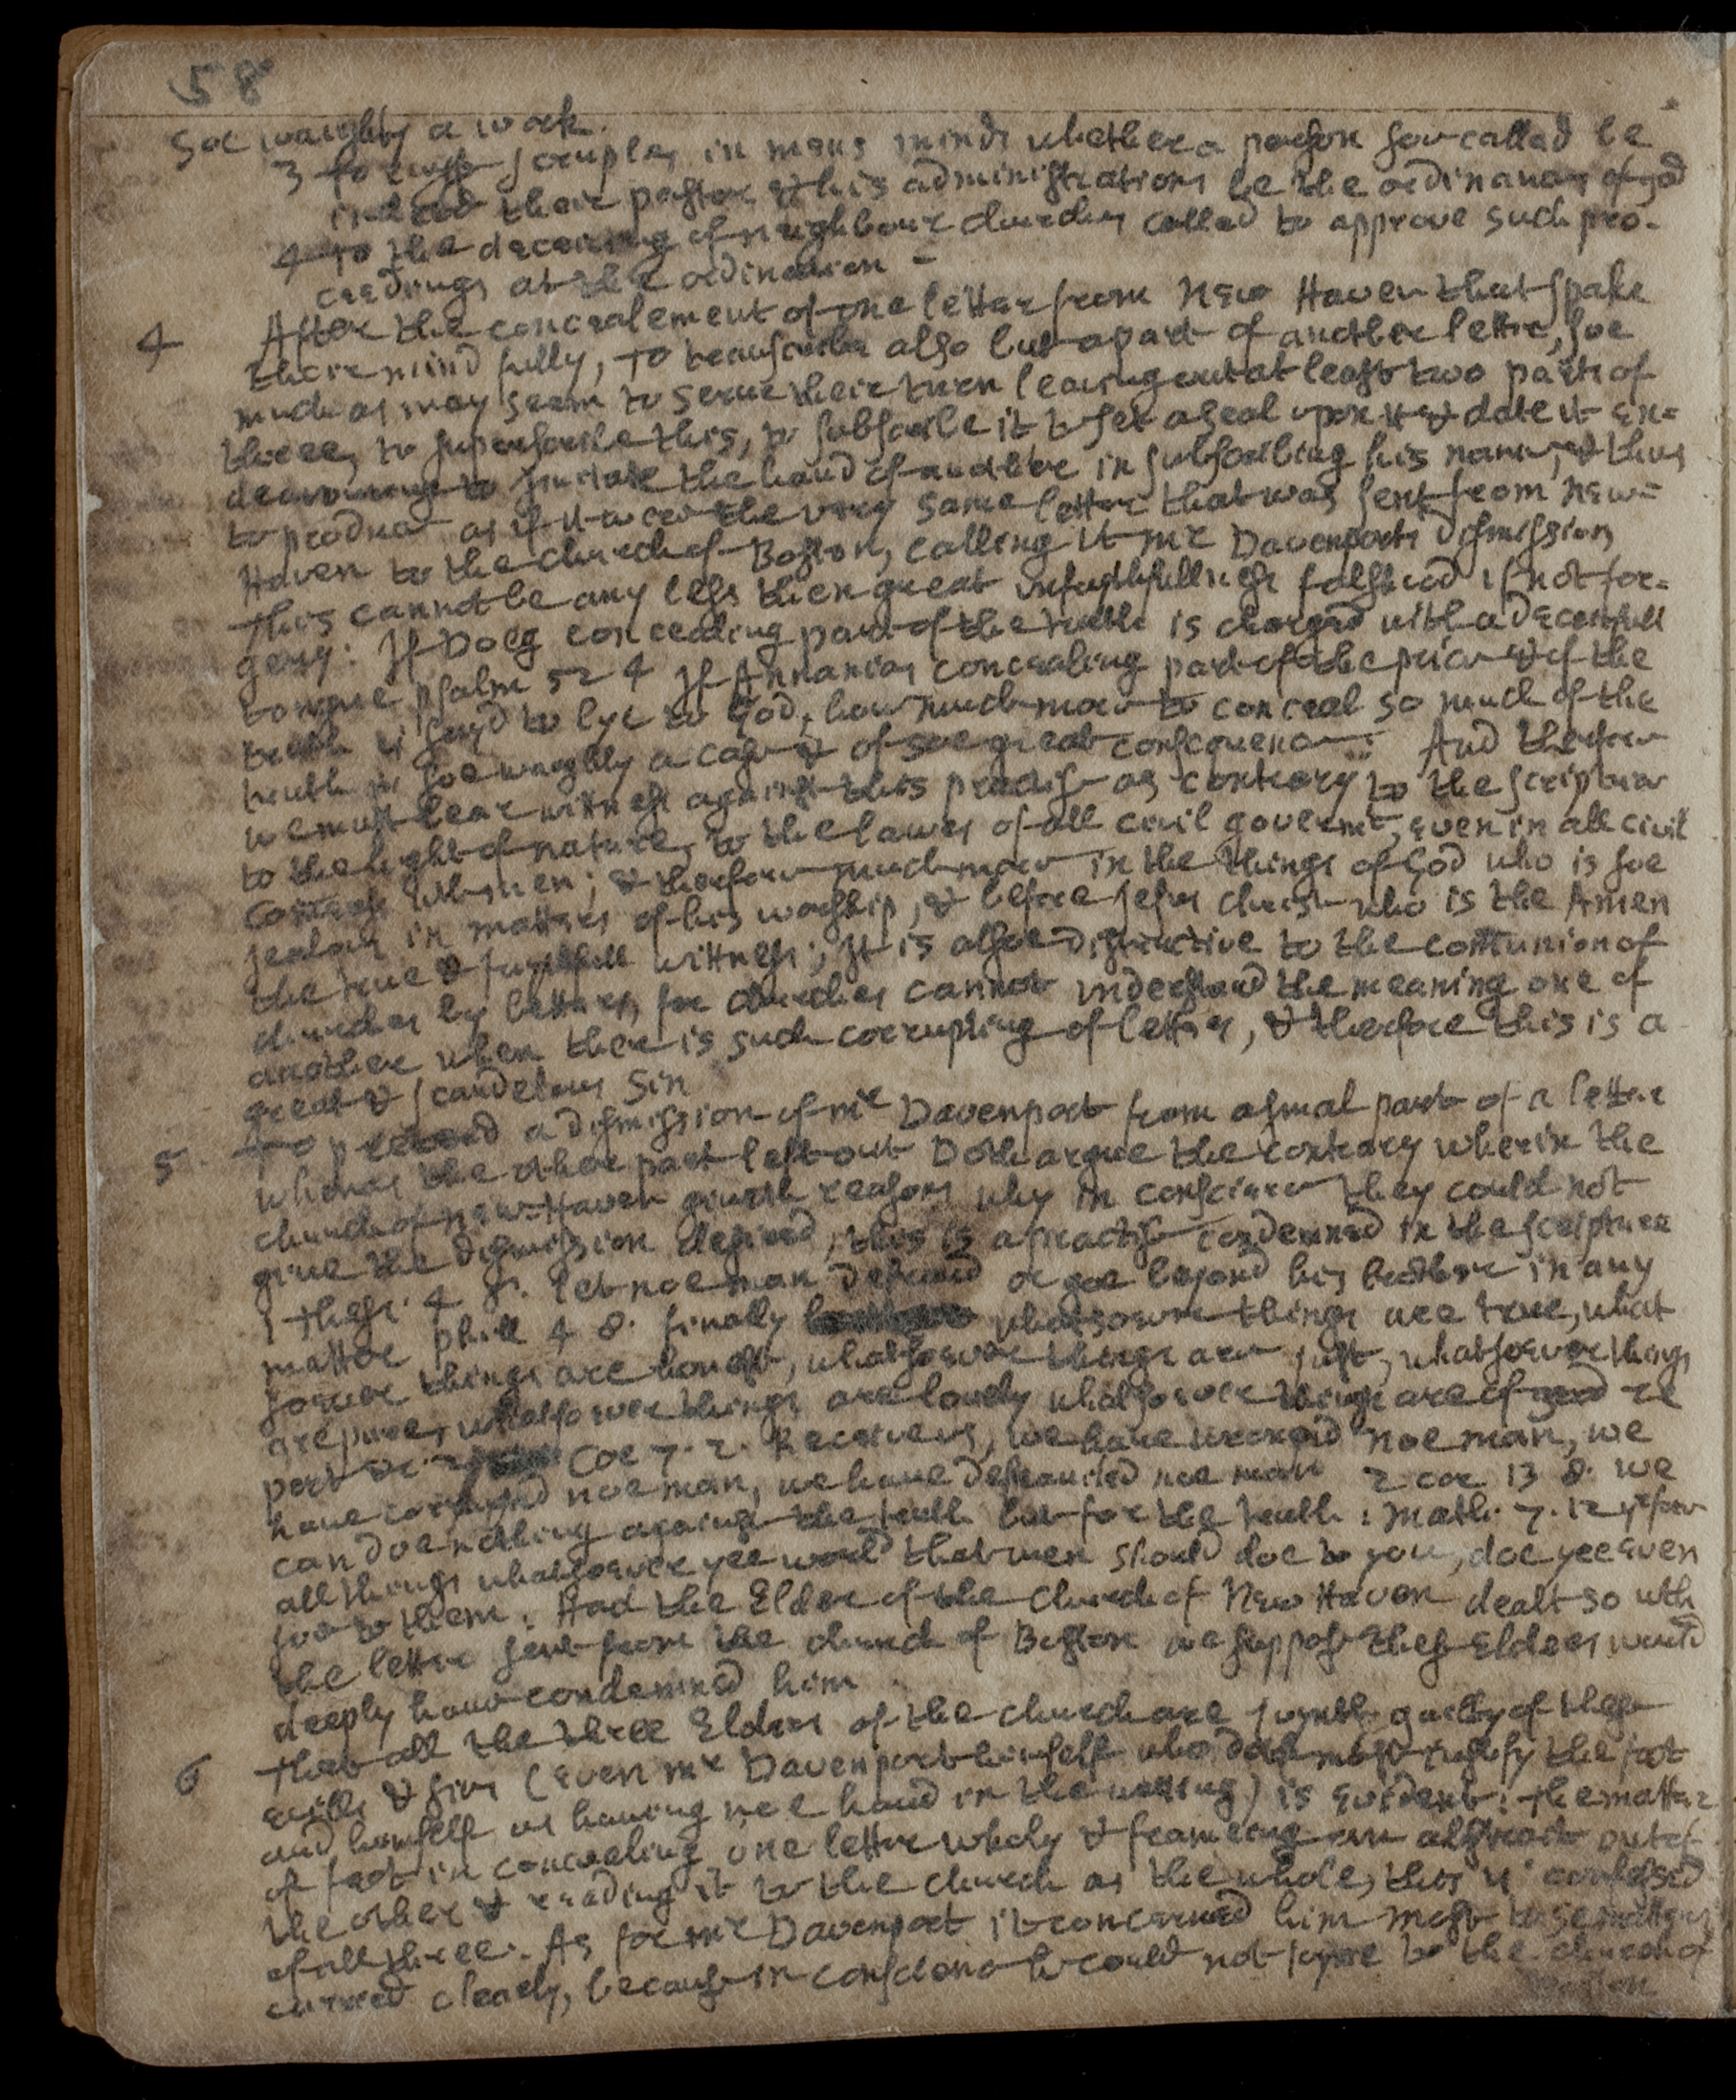 58
Soe waighty a work.
3 to cause scruples in mens minds whether a person soe called be
indeed their pastor & his administrations be the ordinances of god
4 to the deceiving of neighbour churches called to approve such pro-
ceedings at the ordination -
4 After the concealement of one letter from New Haven that spake
their mind fully, To transcribe also but a part of another letter, soe
much as may seem to serve their turn leaving out at least two parts of
three, to superscribe this, to subscribe it to set a seal upon it & date it en=
deavouring to imitate the hand of another in subscribing his name, & thus
to produce as if it were the very same letter that was sent from New=
Haven to the church of Boston, calling it mr Davenports dismission
This cannot be any less then great unfaithfullness falshood if not for=
gery: If Doeg concealing part of the truth is charged with a deceitfull
tongue psalm 52 4 If Annanias concealing part of the price & of the
truth is sayd to lye to God, how much more to conceal so much of the
truth in soe waighty a case & of soe great consequence: And therfore
we must bear witness against this practise as contrary to the scripture
to the light of nature, to the lawes of all civil governmt, even in all civil
wth men; & therfore much more in the things of God who is soe
jealous in matters of his worship, & before jesus christ who is the Amen
the true & faythfull wittness; It is alsoe distructive to the comunion of
churches by letters, for churches cannot understand the meaning one of
another when there is such corrupting of letters, & therefore this is a
great & scandelous Sin
5 To pretend a dismission of mr Davenport from a smal part of a letter
whenas the other part left out Doth argue the contrary wherin the
church of new-Haven giveth reasons why in conscience they could not
give the dismission desired, this is a practise condemned in the scripture
1 thess: 4 8. let noe man defraud or goe beyond his brother in any
matter phill 4 8. finally whatsoever things are true, what
soever things are honest, whatsoever things are just, whatsoever things
are pure, whatsoever things are lovely whatsoever things are of good re
port &c: 2 Cor 7. 2. Receive us, we have wronged noe man, we
have corrupted noe man, we have defrauded noe man 2 cor 13 8. we
can doe nothing against the truth but for the truth: math: 7. 12 yrfore
all things whatsoever yee would that men should doe to you, doe yee even
soe to them: Had the Elder of the church of New Haven dealt so wth
the letter sent from the church of Boston we suppose thes Elders would
deeply have condemned him
6 That all the three Elders of the church are joyntly guilty of these
evills & sins (even mr Davenport himself who doth most justify the fact
and himself as having noe hand in the writing) is evident: the matter
of fact in concealing one letter wholy & frameing an abstract out of
the other & reading it to the church as the whole, this is confessed
of all three. As for mr Davenport it concerned him most to se matters
carried clearly, because in conscience he could not joyne to the church of
Boston